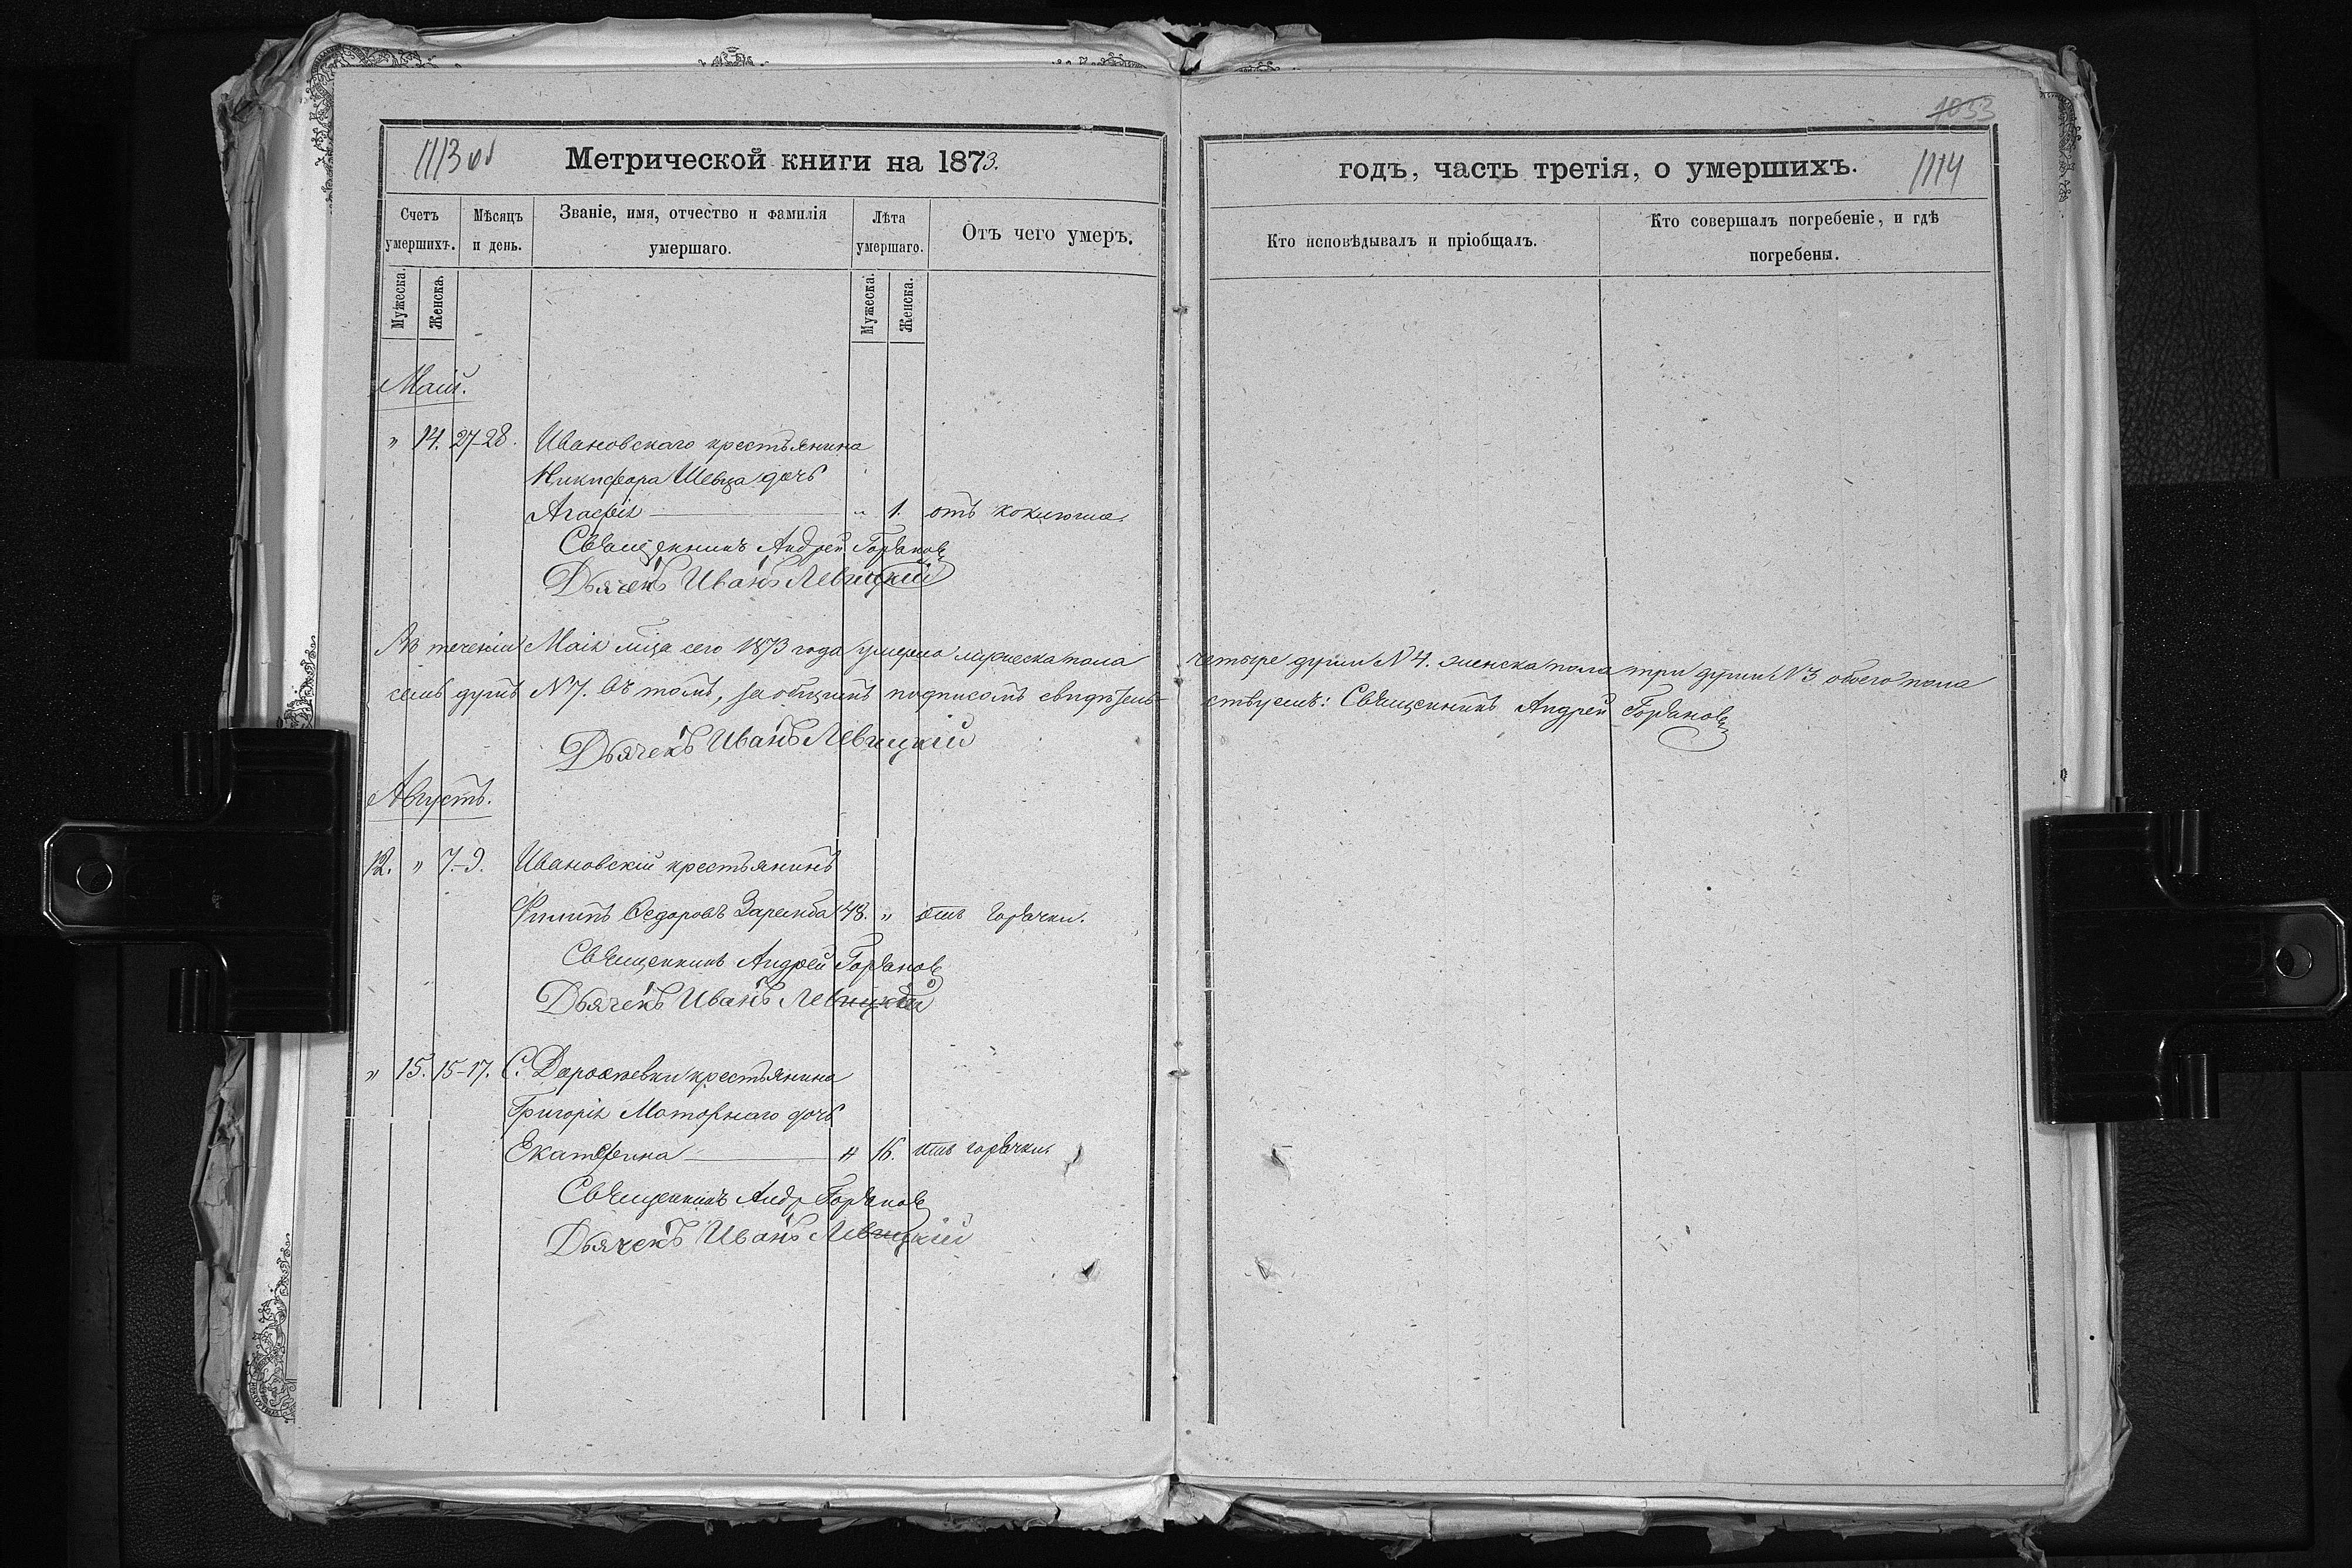 1033
1113 об
Метрической книги на 1873.
годъ, часть третія, о умершихъ.
1114
Счетъ умершихъ.
Мѣсяцъ и день.
Званіе, имя, отчество и фамилія умершаго.
Лѣта умершаго.
Отъ чего умеръ.
Кто исповѣдывалъ и пріобщалъ.
Кто совершалъ погребеніе, и гдѣ погребены.
Мужеска.
Женска.
Мужеска.
Женска.
Маій.
" 14. 27-28. Ивановскаго крестьянина
Никифора Шевца дочь
Агафія " 1. отъ коклюша.
Священникъ Андрей Горяновъ
Дьячекъ Иванъ Левицкій
Въ теченіи Маія мѣца сего 1873 года умерло мужеска пола четыре души N 4. женска пола три души N 3 обоего пола
семь душъ N 7. въ томъ, за общимъ подписомъ свидѣтельствуемъ: Священникъ Андрей Горяновъ
Дьячекъ Иванъ Левицкій
Августъ.
12. " 7-9. Ивановскій крестьянинъ
Филипъ Федоровъ Заремба 48. " отъ горячки.
Священникъ Андрей Горяновъ
Дьячекъ Иванъ Левицкій
" 15. 15-17. С. крестьянина
Григорія Моторнаго дочь
Екатерина " 16. отъ горячки.
Священникъ Андр Горяновъ
Дьячекъ Иванъ Левицкій